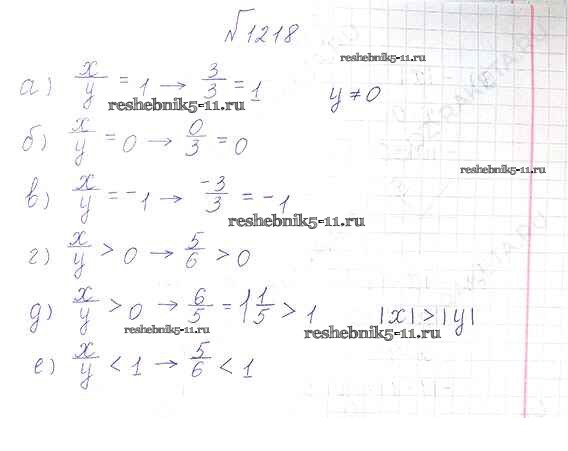 №1218
reshebnik5-11.ru
а) x/y = 1 → 3/3 = 1 y ≠ 0
reshebnik5-11.ru
б) x/y = 0 → 0/3 = 0
reshebnik5-11.ru
в) x/y = -1 → -3/3 = -1
reshebnik5-11.ru
г) x/y > 0 → 5/6 > 0
д) x/y > 0 → 6/5 = 1 1/5 > 1 |x| > |y|
reshebnik5-11.ru reshebnik5-11.ru
е) x/y < 1 → 5/6 < 1